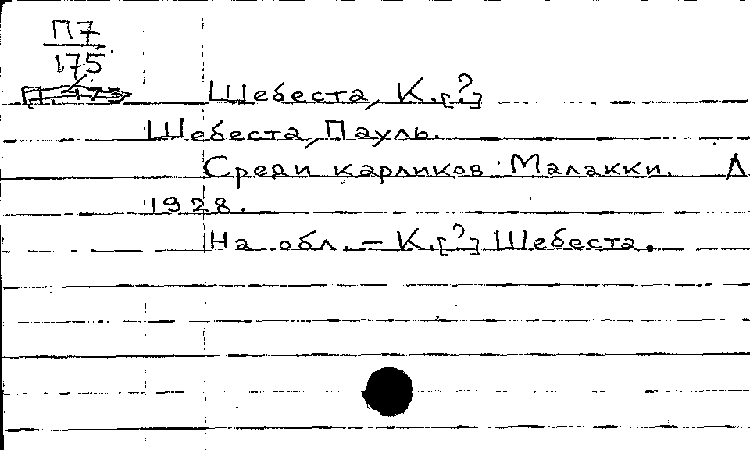 П7
175
Шебеста, К.[?]
Шебеста, Пауль.
Среди карликов Малакки. Л
1928.
На обл. – К.[?] Шебеста.